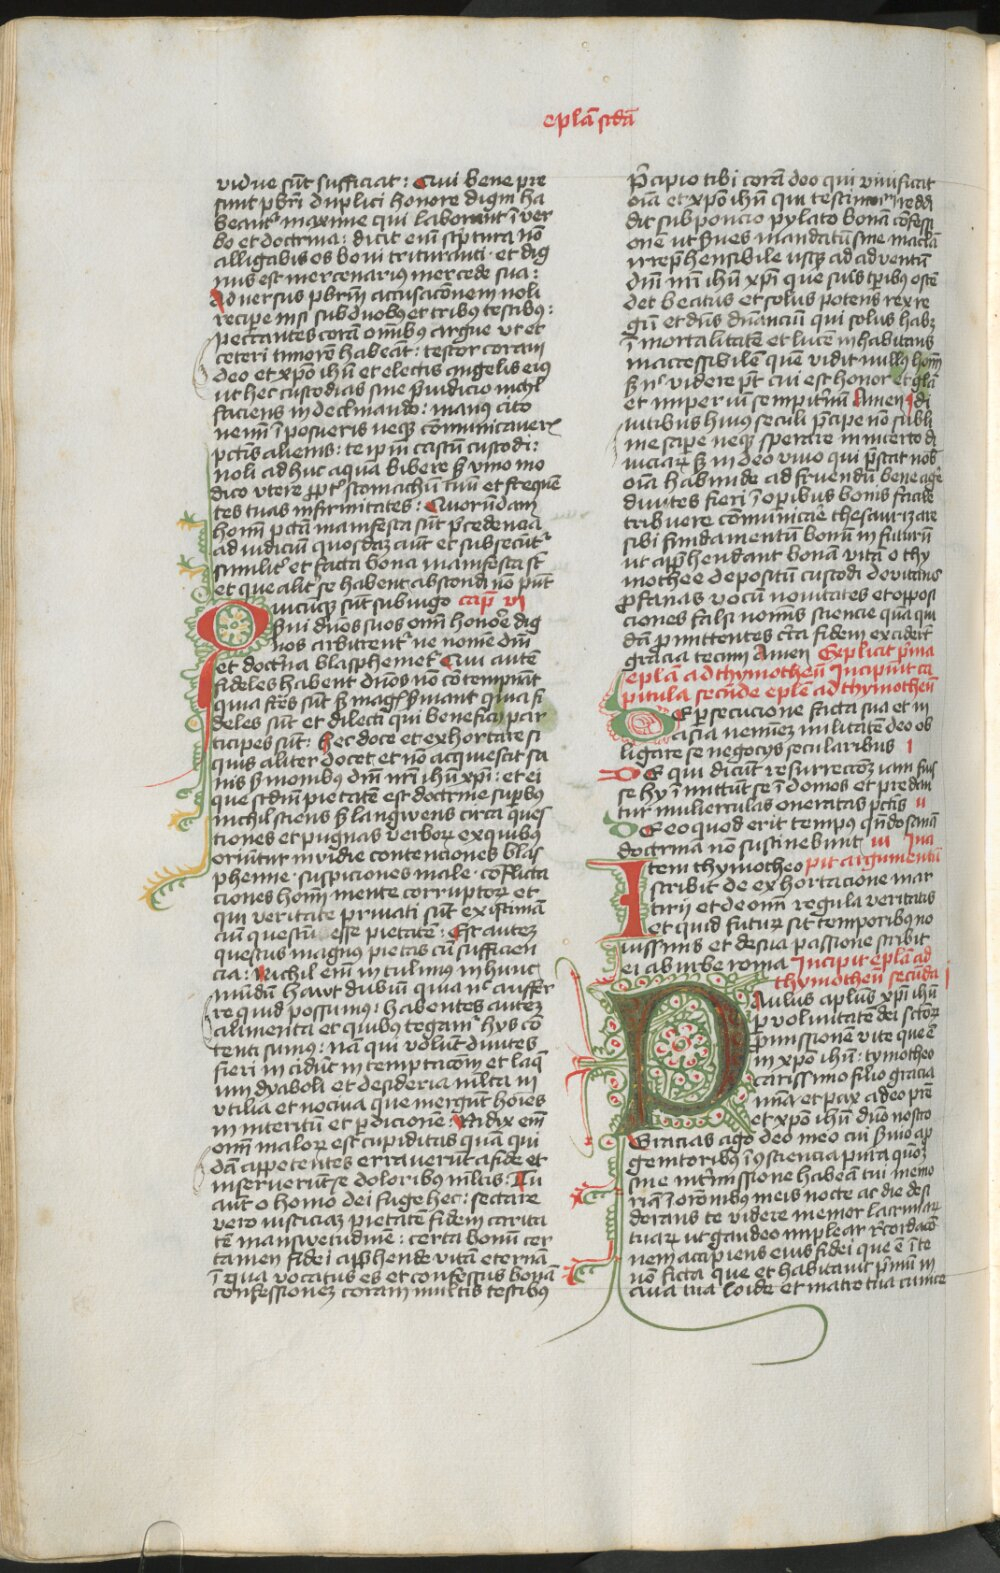 eplā scdā
vidue sūt sufficiat : Qui bene pre
sunt pbrī duplici honore digni ha
beantˀ maxime qui laborant ī ver
bo et doctrina : dicit eniʒ scptura nō
alligabis os bovi trituranti · et dig
nus est mercenariꝰ mercede sua :
Adversus pbrm̄ accusacōnem noli
recipe nisi sub duobꝫ et tribus testibꝫ :
peccantes corā omībꝫ argue vt et
ceteri timorē habeāt : testor coram
deo et xpō ihū et electis angelis eiꝰ
ut hec custodias sine p̄iudicio nichl
faciens in declinando : manꝰ cito
nemī īposueris neqꝫ cōmunicaverˀ
pctīs alienis : te ipm̄ castū custodi :
noli adhuc aquā bibere sꝫ vino mo
dico vtere ꝓptˀ stomachū tuū et freqēn
tes tuas infirmitates : Quorūdam
homī pctā manifesta sūt p̄cedencia
ad iudiciū quosdaʒ aūt et subsecūtˀ
similitˀ et facta bona manifesta sūt
et que alitˀ se habent abscondi nō pūt
Quicūqꝫ sūt sub iugo cap̄ vi
sʼvi dnōs suos omī honore dig
nos arbitrentˀ ne nomē dnī
et doctrīa blasphemetˀ Qui autē
fideles habent dnōs nō cōtempnāt
quia frēs sūt sꝫ magˀ sʼviant quia fi
deles sūt et dilecti qui beneficij par
ticipes sūt : hec doce et exhortare si
quis aliter docet et nō acquiescit sa
nis sʼmonibꝰ dnī nrī ihū xpī : et ei
que scdm̄ pietatē est doctrine supbꝰ
nichil sciens sꝫ langwens circa ques
tiones et pugnas verboꝝ ex quibꝰ
oriūtur invidie contenciones blas
phemie · suspiciones male · cōflicta
ciones homī mente corruptoꝝ et
qui veritate privati sūt existimā
ciū questū esse pietatē : Est auteʒ
questus magnus pietas cū sufficien
cia : Nichil enī intulimꝰ in hunc
mundū hawt dubiū quia nˀ auffer
re quid possumꝰ : habentes auteʒ
alimenta et quibꝰ tegamˀ hys cō
tenti sumꝰ : nā qui volūt divites
fieri incidūt in temptacōem et laq̄
um dyaboli et desideria mlta in
vtilia et nociva que mergūt hoīes
in interitū et pdicionē : Radix enī
omī maloꝝ est cupiditas quā qui
dā appetentes erraverūt a fide et
inseruerūt se doloribus mltis : Tu
aūt o homo dei fuge hec : sectare
vero iusticiaʒ pietatē fidem carita
tē manswetudinē : certa bonū cer
tamen fidei appʼhende vitā eternā
ī qua vocatus es et confessus bonā
confessioneʒ coram multis testibus
P̄cipio tibi corā deo qui vivificat
oīa et xpō ihū qui testimoniū reddi
dit sub poncio pylato bonā cōfessi
onē ut sʼves mandatū sine macla
irrepʼhensibile usqꝫ ad adventū
dnī nrī ihū xpī quē suis tpribꝰ oste
det beatus et solus potens rex re
gū et dns̄ dnānciū qui solus habꝫ
īmortalitatē et lucē inhabitans
inaccessibilē quē vidit nullꝰ homī
sꝫ nˀ videre pt̄ cui est honor et glā
et imperiū sempitnū Amen di
vitibus huius seculi p̄cipe nō subli
me sapere neqꝫ sperare in incerto di
viciaꝝ sꝫ in deo vivo qui p̄stat nob
oīa habunde ad fruendū bene agēˀ
divites fieri ī opibus bonis facile
tribuere cōmunicāˀ thesaurizare
sibi fundamentū bonū in futurū
ut appʼhendant bonā vitā o thy
mothee depositū custodi devitans
ꝓfanas vocū novitates et opposi
ciones falsi nominis sciencie quā qui
dā pmittentes cˀca fidem exciderūt
gracia tecum Amen Explicit pˀma
eplā ad thymotheū Incipiūt ca
pitula secunde eplē ad thymotheū
De persecucione facta sua et in
asia nemineʒ militātē deo ob
ligare se negocys secularibus i
De qui dicūt resurreccōʒ iam fuisse
se hy ī mittūt se ī domos et predān
tur mulierculas oneratas pctīs ii
De eo quod erit tempus qn̄do sanā
doctrinā non sustinebunt iii Inci
Item thymotheo pit argumentū
scribit de exhortacione mar
tirij et de omī regula veritatis
et quid futuꝝ sit temporibus no
vissimis et de sua passione scribit
ei ab urbe roma Incipit eplā ad
thymotheū secunda i
Paulus aplus xpī ihū
p voluntatē dei scdm̄
pmissionē vite que ē
in xpō ihū : tymotheo
carissimo filio gracia
mīa et pax a deo prē
et xpō ihū dnō nostro
Gracias ago deo meo cui sʼvio a p
genitoribus ī ꝯsciencia pura quoʒ
sine intˀmissione habeā tui memo
riā ī orōnibus meis nocte ac die desi
derans te videre memor lacrimaꝝ
tuaꝝ ut gaudeo implear Rˀcordacō
nem accipiens eius fidei que ē ī te
nō ficta que et habitavit pˀmū in
avia tua loide et matre tua eunice